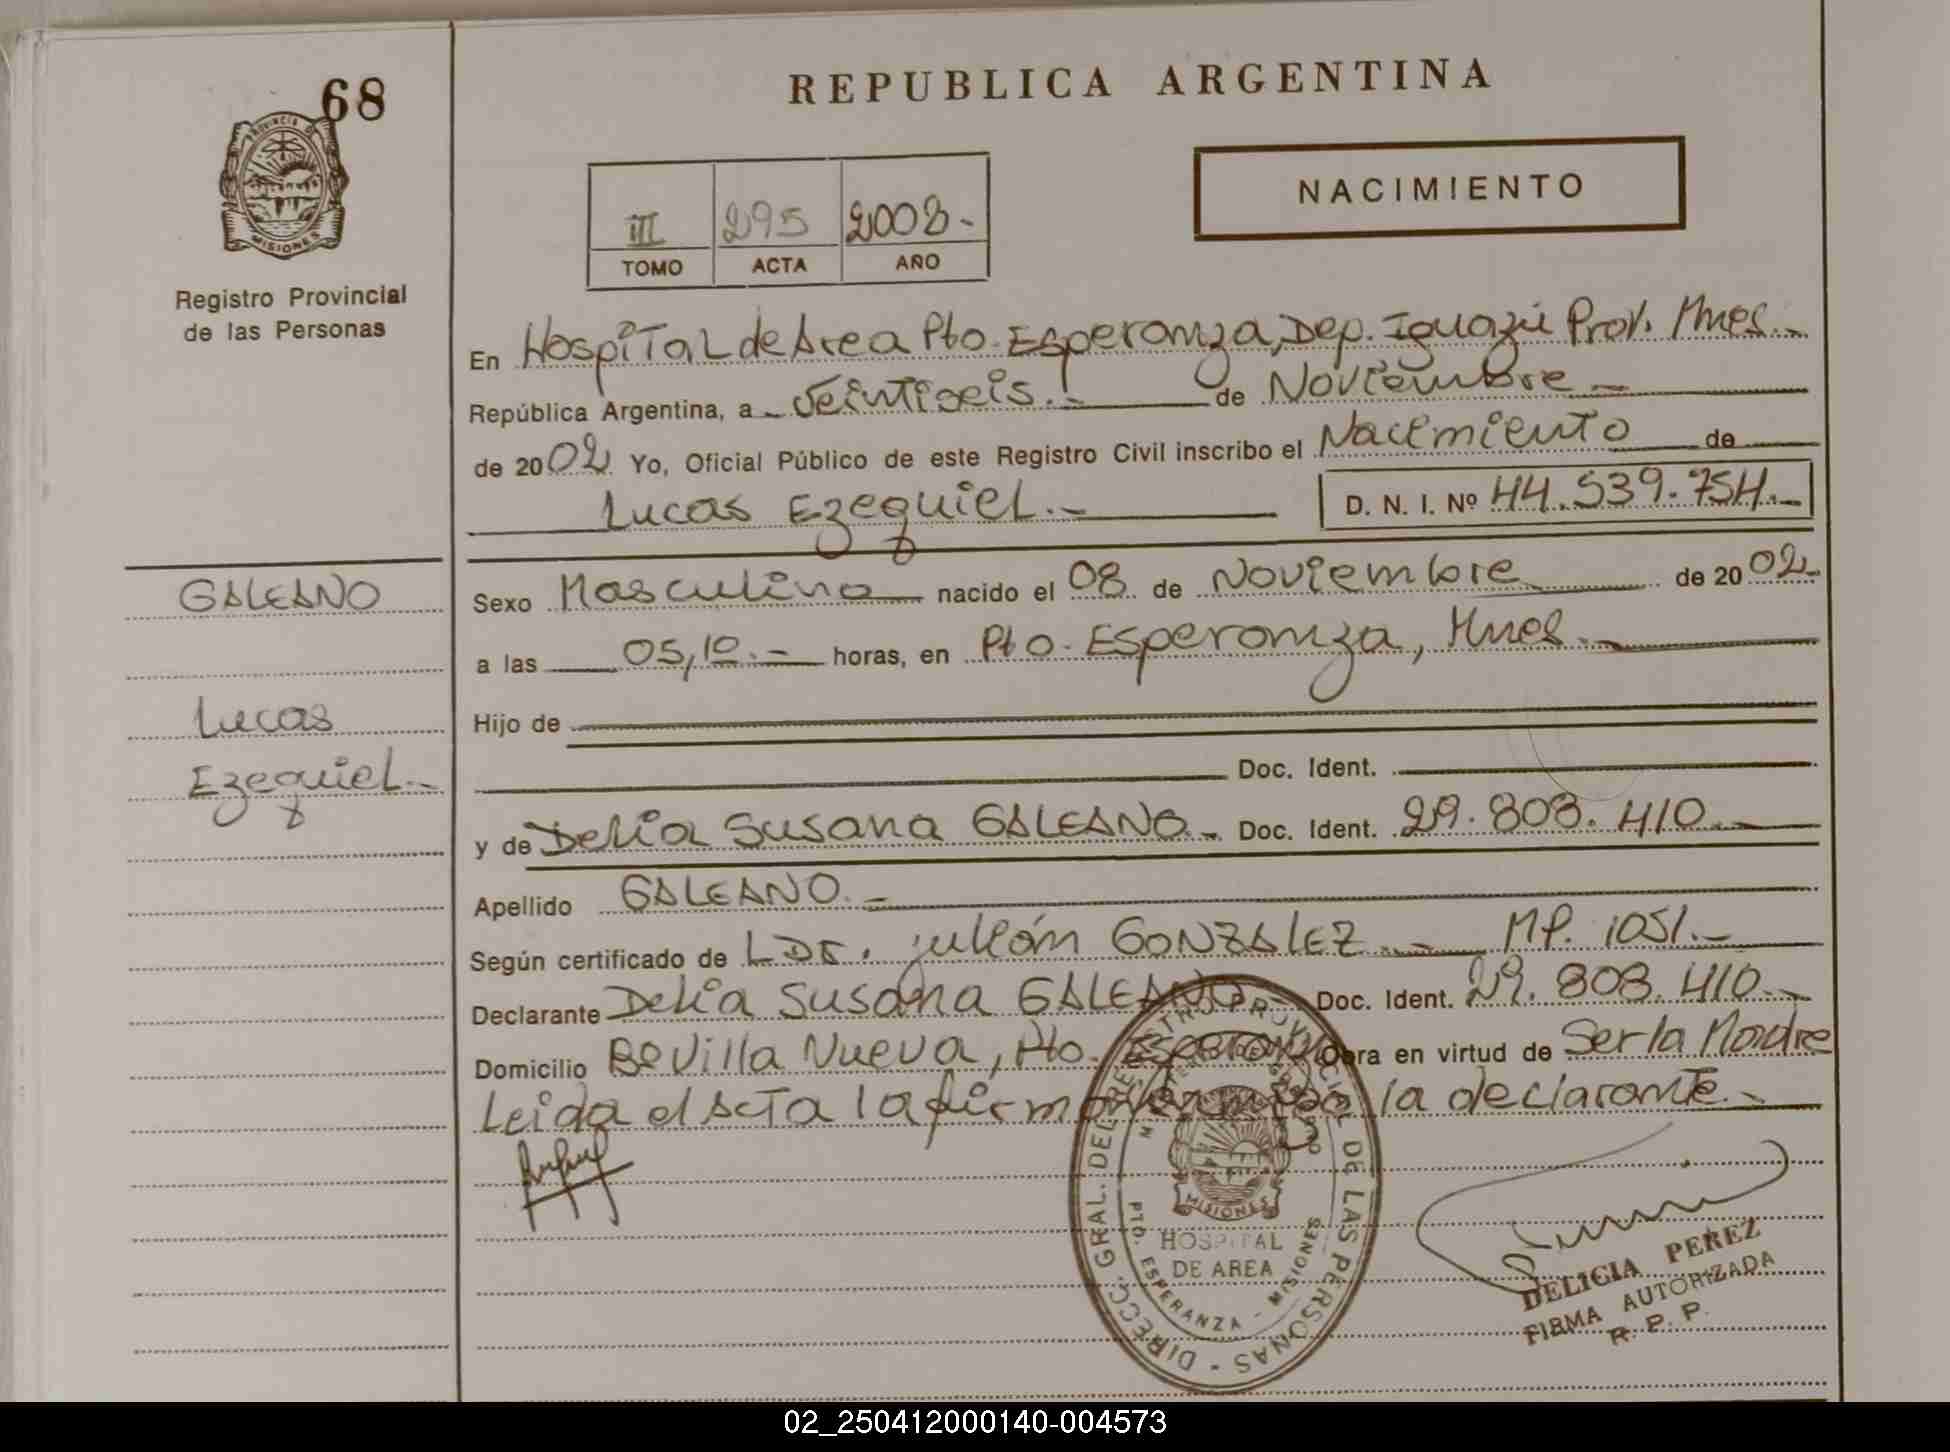 68
REPUBLICA ARGENTINA
PROVINCIA DE
MISIONES
Registro Provincial
de las Personas
III 295 2002.-
TOMO ACTA AÑO
NACIMIENTO
En Hospital de Area Pto. Esperanza, Dep. Iguazú Prov. Mnes.-
República Argentina, a - Veintiseis.- de Noviembre -
de 2002 Yo, Oficial Público de este Registro Civil inscribo el Nacimiento de
Lucas Ezequiel.- D. N. I. Nº 44.539.754.-
GALEANO
Lucas
Ezequiel.-
Sexo Masculino nacido el 08 de Noviembre de 2002
a las 05,10.- horas, en Pto. Esperanza, Mnes.-
Hijo de
Doc. Ident.
y de Delia Susana GALEANO.- Doc. Ident. 29.808.410.-
Apellido GALEANO.-
Según certificado de Julián GONZALEZ.- MP. 1051.-
Declarante Delia Susana GALEANO.- Doc. Ident. 29.808.410.-
Domicilio Bº Villa Nueva, Pto. Esperanza Obra en virtud de Ser la Madre
Leida el Acta la firman la declarante.-
DIRECC. GRAL. DEL REGISTRO PROVINCIAL DE LAS PERSONAS
MISIONES
HOSPITAL
DE AREA
PTO. ESPERANZA - MISIONES
DELICIA PEREZ
FIRMA AUTORIZADA
R. P. P.
02_250412000140-004573